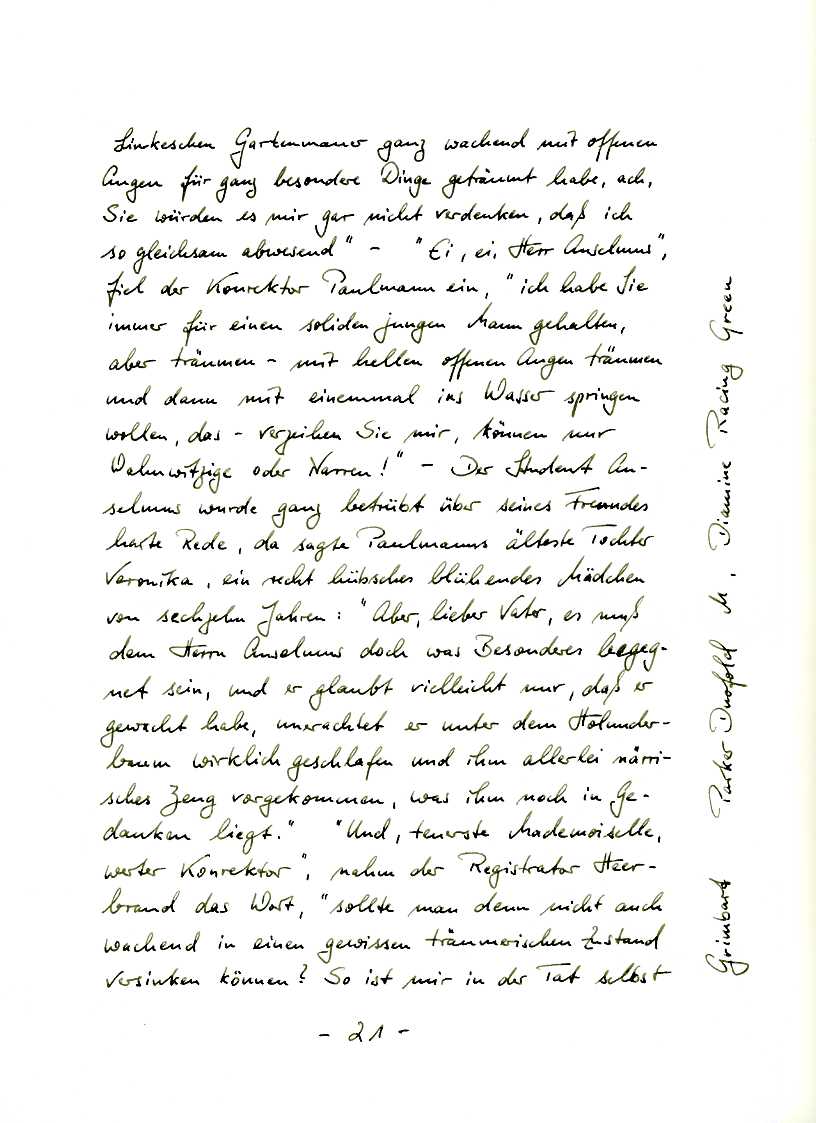 Linkeschen Gartenmauer ganz wachend mit offenen
Augen für ganz besondere Dinge geträumt habe, ach,
Sie würden es mir gar nicht verdenken, daß ich
so gleichsam abwesend" - "Ei, ei, Herr Anselmus",
fiel der Konrektor Paulmann ein, "ich habe Sie
immer für einen soliden jungen Mann gehalten,
aber träumen - mit hellen offenen Augen träumen
und dann mit einemmal ins Wasser springen
wollen, das - verzeihen Sie mir, können nur
Wahnwitzige oder Narren!" - Der Student An-
selmus wurde ganz betrübt über seines Freundes
harte Rede, da sagte Paulmanns älteste Tochter
Veronika, ein recht hübsches blühendes Mädchen
von sechzehn Jahren: "Aber, lieber Vater, es muß
dem Herrn Anselmus doch was Besonderes begeg-
net sein, und er glaubt vielleicht nur, daß er
gewacht habe, unerachtet er unter dem Holunder-
baum wirklich geschlafen und ihm allerlei närri-
sches Zeug vorgekommen, was ihm noch in Ge-
danken liegt." "Und, teuerste Mademoiselle,
werter Konrektor", nahm der Registrator Heer-
brand das Wort, "sollte man denn nicht auch
wachend in einen gewissen träumerischen Zustand
versinken können? So ist mir in der Tat selbst
- 21 -
Grimbart Parker Duofold M, Diamine Racing Green